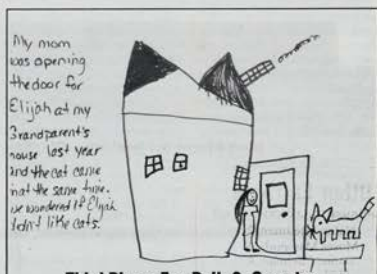 My mom
was opening
the door for
Elijah at my
Grandparent's
house last year
and the cat came
in at the same time.
we wondered if Elijah
didn't like cats.